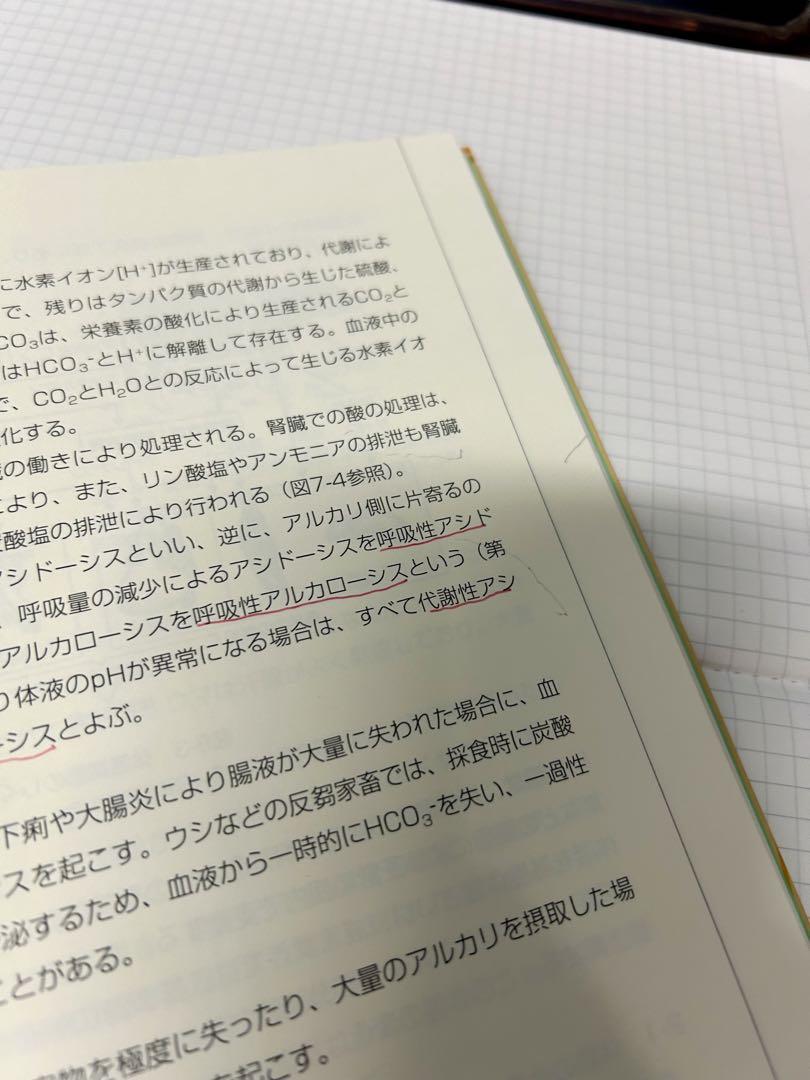 に水素イオン[H⁺]が生産されており、代謝によ
で、残りはタンパク質の代謝から生じた硫酸、
CO₃は、栄養素の酸化により生産されるCO₂と
はHCO₃⁻とH⁺に解離して存在する。血液中の
で、CO₂とH₂Oとの反応によって生じる水素イオ
化する。
の働きにより処理される。腎臓での酸の処理は、
により、また、リン酸塩やアンモニアの排泄も腎臓
酸塩の排泄により行われる（図7-4参照）。
シドーシスといい、逆に、アルカリ側に片寄るの
、呼吸量の減少によるアシドーシスを呼吸性アシド
アルカローシスを呼吸性アルカローシスという（第
り体液のpHが異常になる場合は、すべて代謝性アシ
ーシスとよぶ。
下痢や大腸炎により腸液が大量に失われた場合に、血
スを起こす。ウシなどの反芻家畜では、採食時に炭酸
泌するため、血液から一時的にHCO₃⁻を失い、一過性
ことがある。
物を極度に失ったり、大量のアルカリを摂取した場
を起こす。